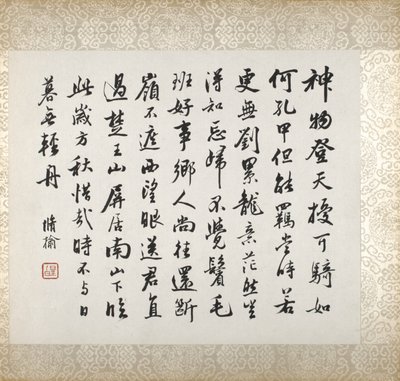 神物登天擾可騎如
何孔甲但能羈當時若
更無劉累龍意茫然豈
得知忘歸不覺鬢毛
班好事鄉人尚往還斷
嶺不遮西望眼送君直
過楚王山屏居南山下臨
此歲方秋惜哉時不與日
暮無輕舟
脩